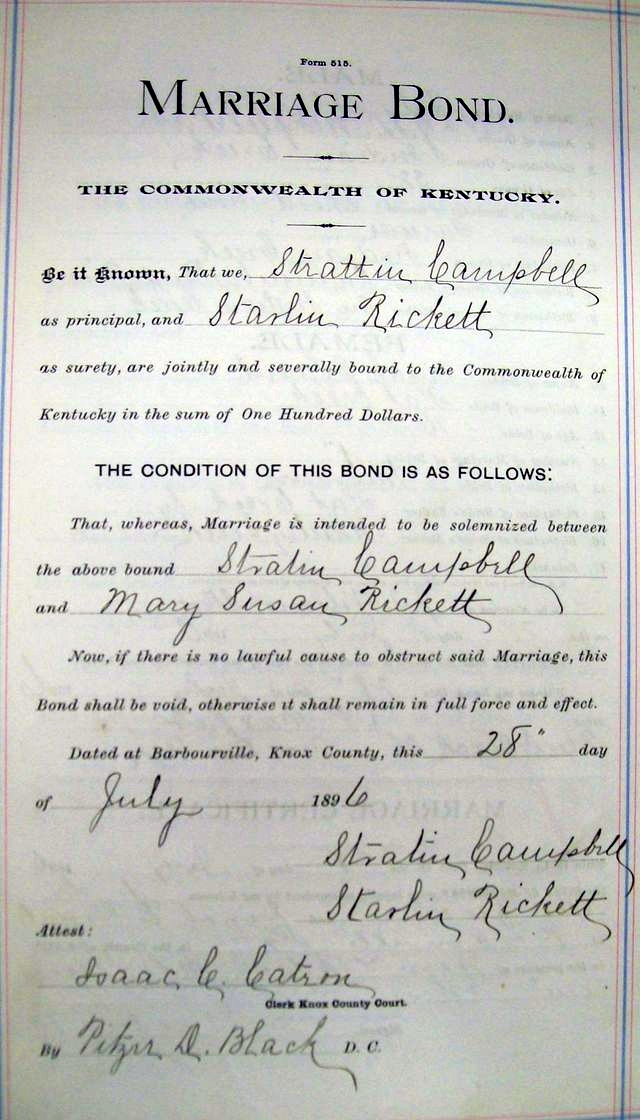 Form 515.
MARRIAGE BOND.
THE COMMONWEALTH OF KENTUCKY.
Be it Known, That we, Strattin Campbell
as principal, and Starlin Rickett
as surety, are jointly and severally bound to the Commonwealth of
Kentucky in the sum of One Hundred Dollars.
THE CONDITION OF THIS BOND IS AS FOLLOWS:
That, whereas, Marriage is intended to be solemnized between
the above bound Stratin Campbell
and Mary Susan Rickett
Now, if there is no lawful cause to obstruct said Marriage, this
Bond shall be void, otherwise it shall remain in full force and effect.
Dated at Barbourville, Knox County, this 28" day
of July 1896
Stratin Campbell
Starlin Rickett
Attest:
Isaac C. Catron
Clerk Knox County Court.
By Pitzer D. Black D. C.